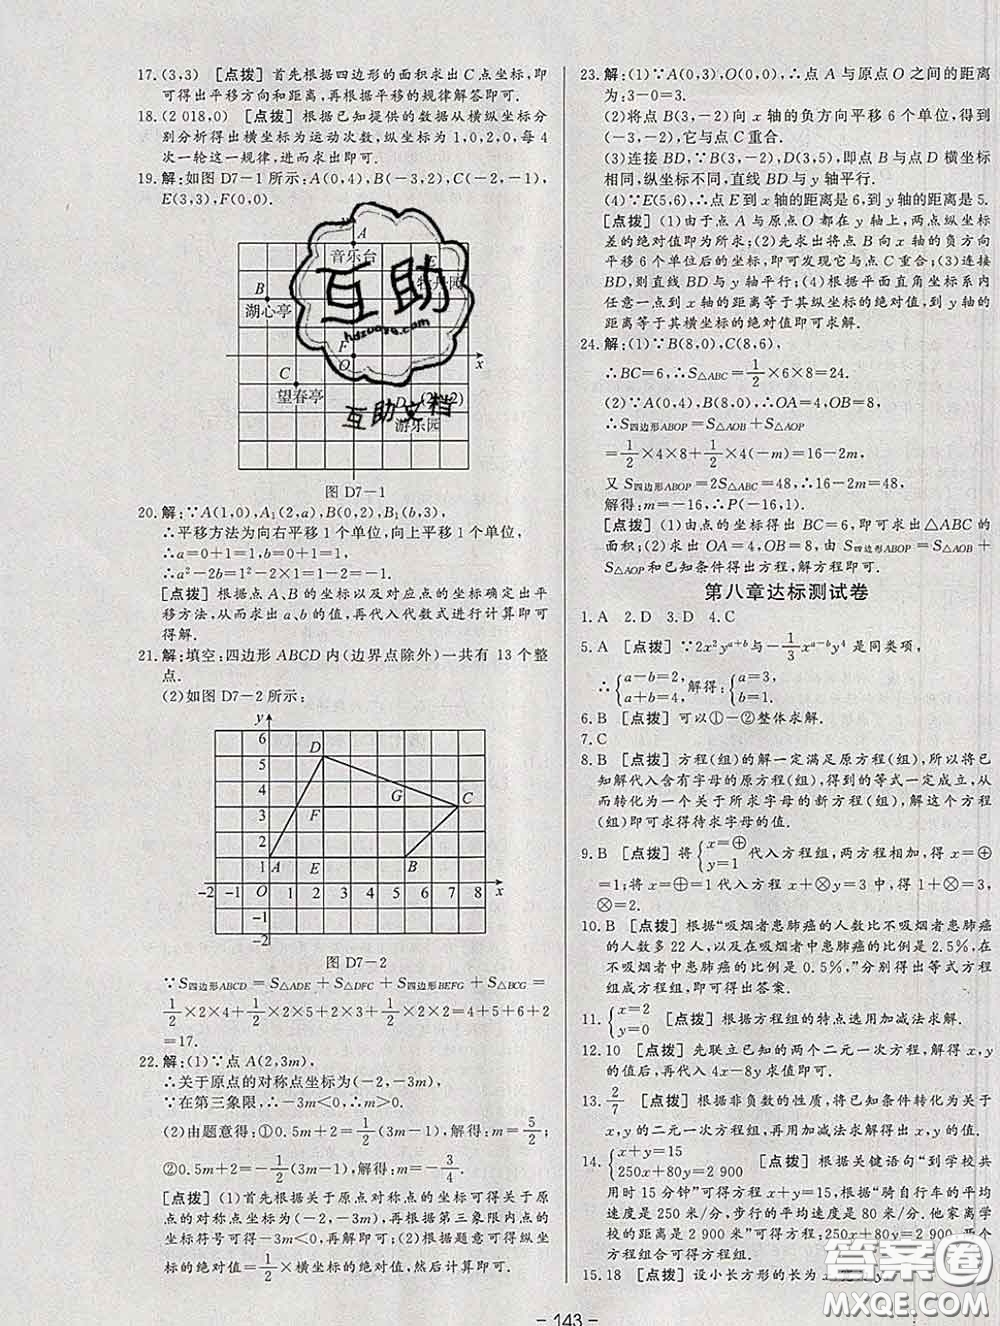 17.(3,3) [点拨]首先根据四边形的面积求出C点坐标,即
可得出平移方向和距离,再根据平移的规律解答即可.
18.(2 018,0) [点拨]根据已知提供的数据从横纵坐标分
别分析得出横坐标为运动次数,纵坐标为1,0,2,0,每4
次一轮这一规律,进而求出即可.
19.解:如图D7-1所示:A(0,4),B(-3,2),C(-2,-1),
E(3,3),F(0,0).
A
音乐台
E
牡丹园
B
湖心亭
F
O
x
C
望春亭
D (2,-2)
游乐园
互助
hdzuoye.com
互助文档
图D7-1
20.解:∵A(1,0),A₁(2,a),B(0,2),B₁(b,3),
∴平移方法为向右平移1个单位,向上平移1个单位,
∴a=0+1=1,b=0+1=1,
∴a²-2b=1²-2×1=1-2=-1.
[点拨]根据点A、B的坐标以及对应点的坐标确定出平
移方法,从而求出a、b的值,再代入代数式进行计算即可
得解.
21.解:填空:四边形ABCD内(边界点除外)一共有13个整
点.
(2)如图D7-2所示:
y
6
5
4
3
2
1
D
G
C
F
A
E
B
-2 -1 O 1 2 3 4 5 6 7 8 x
-1
-2
图D7-2
∵S四边形ABCD=S△ADE+S△DFC+S四边形BEFG+S△BCG=
1/2×2×4+1/2×2×5+2×3+1/2×2×2=4+5+6+2
=17.
22.解:(1)∵点A(2,3m),
∴关于原点的对称点坐标为(-2,-3m),
∵在第三象限,∴-3m<0,∴m>0.
(2)由题意得:①0.5m+2=1/2(3m-1),解得:m=5/2;
②0.5m+2=-1/2(3m-1),解得:m=-3/4.
[点拨](1)首先根据关于原点对称点的坐标可得关于原
点的对称点为(-2,-3m),再根据第三象限内点的
坐标符号可得-3m<0,再解即可;(2)根据题意可得纵坐
标的绝对值=1/2×横坐标的绝对值,然后计算即可.
23.解:(1)∵A(0,3),O(0,0),∴点A与原点O之间的距离
为:3-0=3.
(2)将点B(3,-2)向x轴的负方向平移6个单位,得到
(-3,-2),它与点C重合.
(3)连接BD,∵B(3,-2),D(3,5),即点B与点D横坐标
相同,纵坐标不同,直线BD与y轴平行.
(4)∵E(5,6),∴点E到x轴的距离是6,到y轴的距离是5.
[点拨](1)由于点A与原点O都在y轴上,两点纵坐标
差的绝对值即为所求;(2)先求出将点B向x轴的负方向
平移6个单位后的坐标,即可发现它与点C重合;(3)连接
BD,则直线BD与y轴平行;(4)根据平面直角坐标系内
任意一点到x轴的距离等于其纵坐标的绝对值,到y轴的
距离等于其横坐标的绝对值即可求解.
24.解:(1)∵B(8,0),C(8,6),
∴BC=6,∴S△ABC=1/2×6×8=24.
(2)∵A(0,4),B(8,0),∴OA=4,OB=8,
∴S四边形ABOP=S△AOB+S△AOP
=1/2×4×8+1/2×4(-m)=16-2m,
又S四边形ABOP=2S△ABC=48,∴16-2m=48,
解得:m=-16,∴P(-16,1).
[点拨](1)由点的坐标得出BC=6,即可求出△ABC的
面积;(2)求出OA=4,OB=8,由S四边形ABOP=S△AOB+
S△AOP和已知条件得出方程,解方程即可.
第八章达标测试卷
1.A 2.D 3.D 4.C
5.A [点拨]∵2x²yᵃ⁺ᵇ与-1/3xᵃ⁻ᵇy⁴是同类项,
∴{a-b=2, a+b=4, 解得:{a=3, b=1.
6.B [点拨]可以①-②整体求解.
7.C
8.B [点拨]方程(组)的解一定满足原方程(组),所以将已
知解代入含有字母的原方程(组),得到的等式一定成立,从
而转化为一个关于所求字母的新方程(组),解这个方程
(组)即可求得待求字母的值.
9.B [点拨]将{x=⊕ y=1代入方程组,两方程相加,得x=
⊕=1;将x=⊕=1代入方程x+⊗y=3中,得1+⊗=3,
⊗=2.
10.B [点拨]根据“吸烟者患肺癌的人数比不吸烟者患肺癌
的人数多22人,以及在吸烟者中患肺癌的比例是2.5%,在
不吸烟者中患肺癌的比例是0.5%,”分别得出等式方程
组成方程组,即可得出答案.
11.{x=2 y=0 [点拨]根据方程组的特点选用加减法求解.
12.10 [点拨]先联立已知的两个二元一次方程,解得x,y
的值后,再代入4x-8y求值即可.
13.2/7 [点拨]根据非负数的性质,将已知条件转化为关于
x,y的二元一次方程组,再用加减法求解得出.
14.{x+y=15 250x+80y=2 900 [点拨]根据关键语句“到学校共
用时15分钟”可得方程x+y=15,根据“骑自行车的平均
速度是250米/分,步行的平均速度是80米/分,他家离学
校的距离是2 900米”可得方程:250x+80y=2 900,两个
方程组合可得方程组.
15.18 [点拨]设小长方形的长为x
答案圈
MXQE.COM
- 143 -